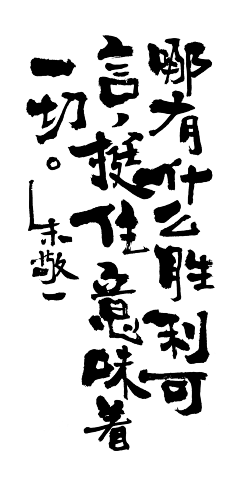 哪有什么胜利可
言，挺住意味着
一切。
朱敬一